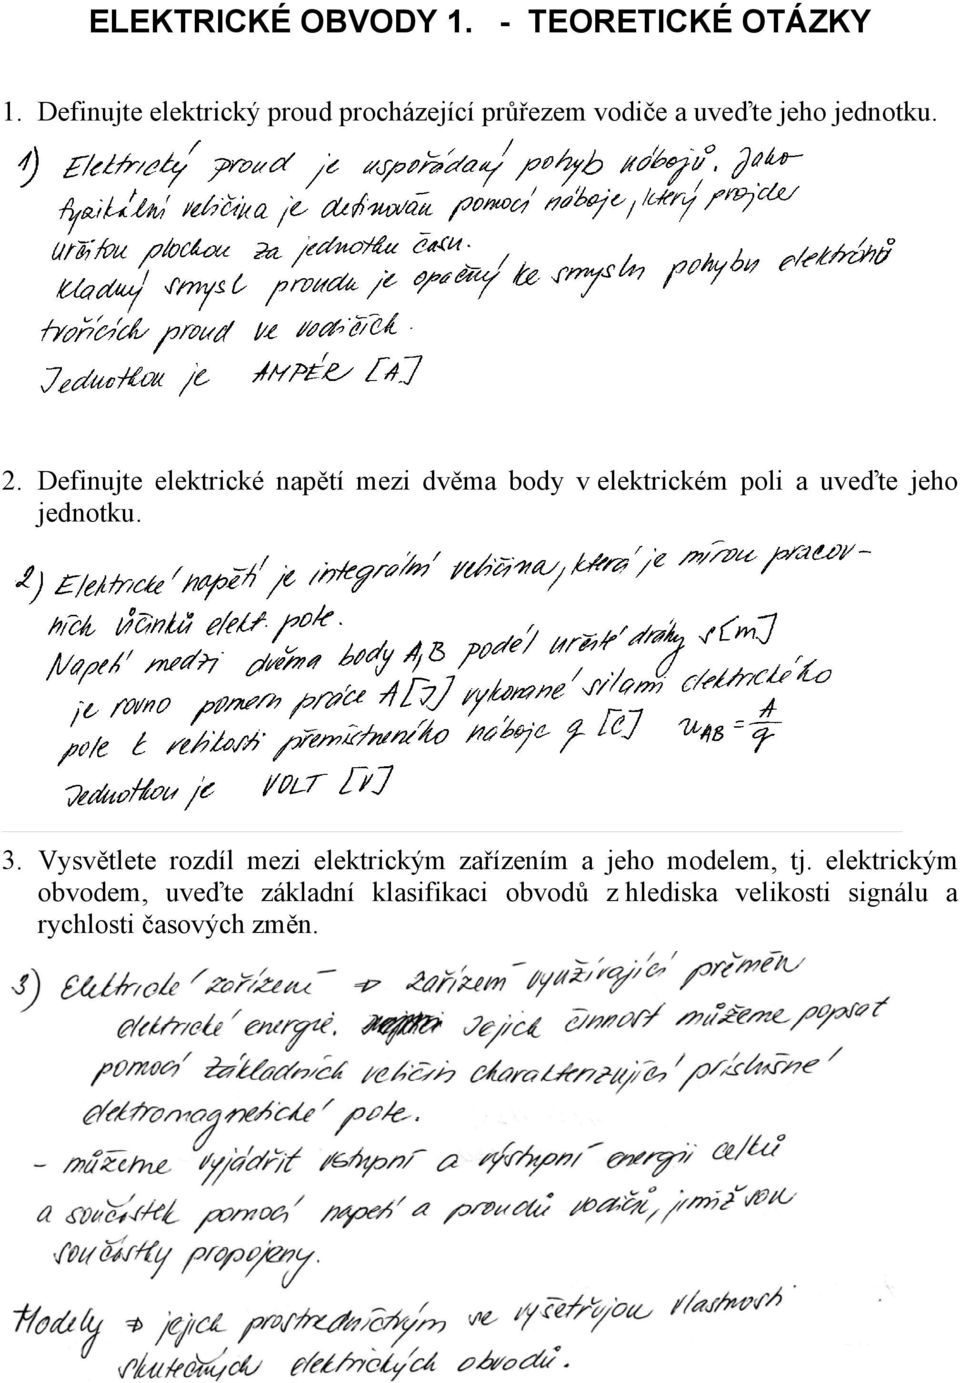 ELEKTRICKÉ OBVODY 1. - TEORETICKÉ OTÁZKY
1. Definujte elektrický proud procházející průřezem vodiče a uveďte jeho jednotku.
1) Elektrický proud je uspořádaný pohyb nábojů. Jako
fyzikální veličina je definován pomocí náboje, který projde
určitou plochou za jednotku času.
Kladný smysl proudu je opačný ke smyslu pohybu elektrónů
tvořících proud ve vodičích.
Jednotkou je AMPÉR [A]
2. Definujte elektrické napětí mezi dvěma body v elektrickém poli a uveďte jeho
jednotku.
2) Elektrické napětí je integrální veličina, která je mírou pracov-
ních účinků elekt. pole.
Napetí medzi dvěma body A,B podél určité dráhy s[m]
je rovno pomeru práce A[J] vykonané silami elektrického
pole k velikosti přemístneného náboje q [C] u_AB = A/q
Jednotkou je VOLT [V]
3. Vysvětlete rozdíl mezi elektrickým zařízením a jeho modelem, tj. elektrickým
obvodem, uveďte základní klasifikaci obvodů z hlediska velikosti signálu a
rychlosti časových změn.
3) Elektrické zařízení ⇒ zařízení využívající přěměn
elektrické energie. Jejich činnost můžeme popsat
pomocí základních veličin charakterizující príslušné
elektromagnetické pole.
- můžeme vyjádřit vstupní a výstupní energii celků
a součástek pomocí napetí a proudů vodičů, jimiž sou
součástky propojeny.
Modely ⇒ jejich prostredníctvým se vyšetřujou vlastnosti
skutečných elektrických obvodů.